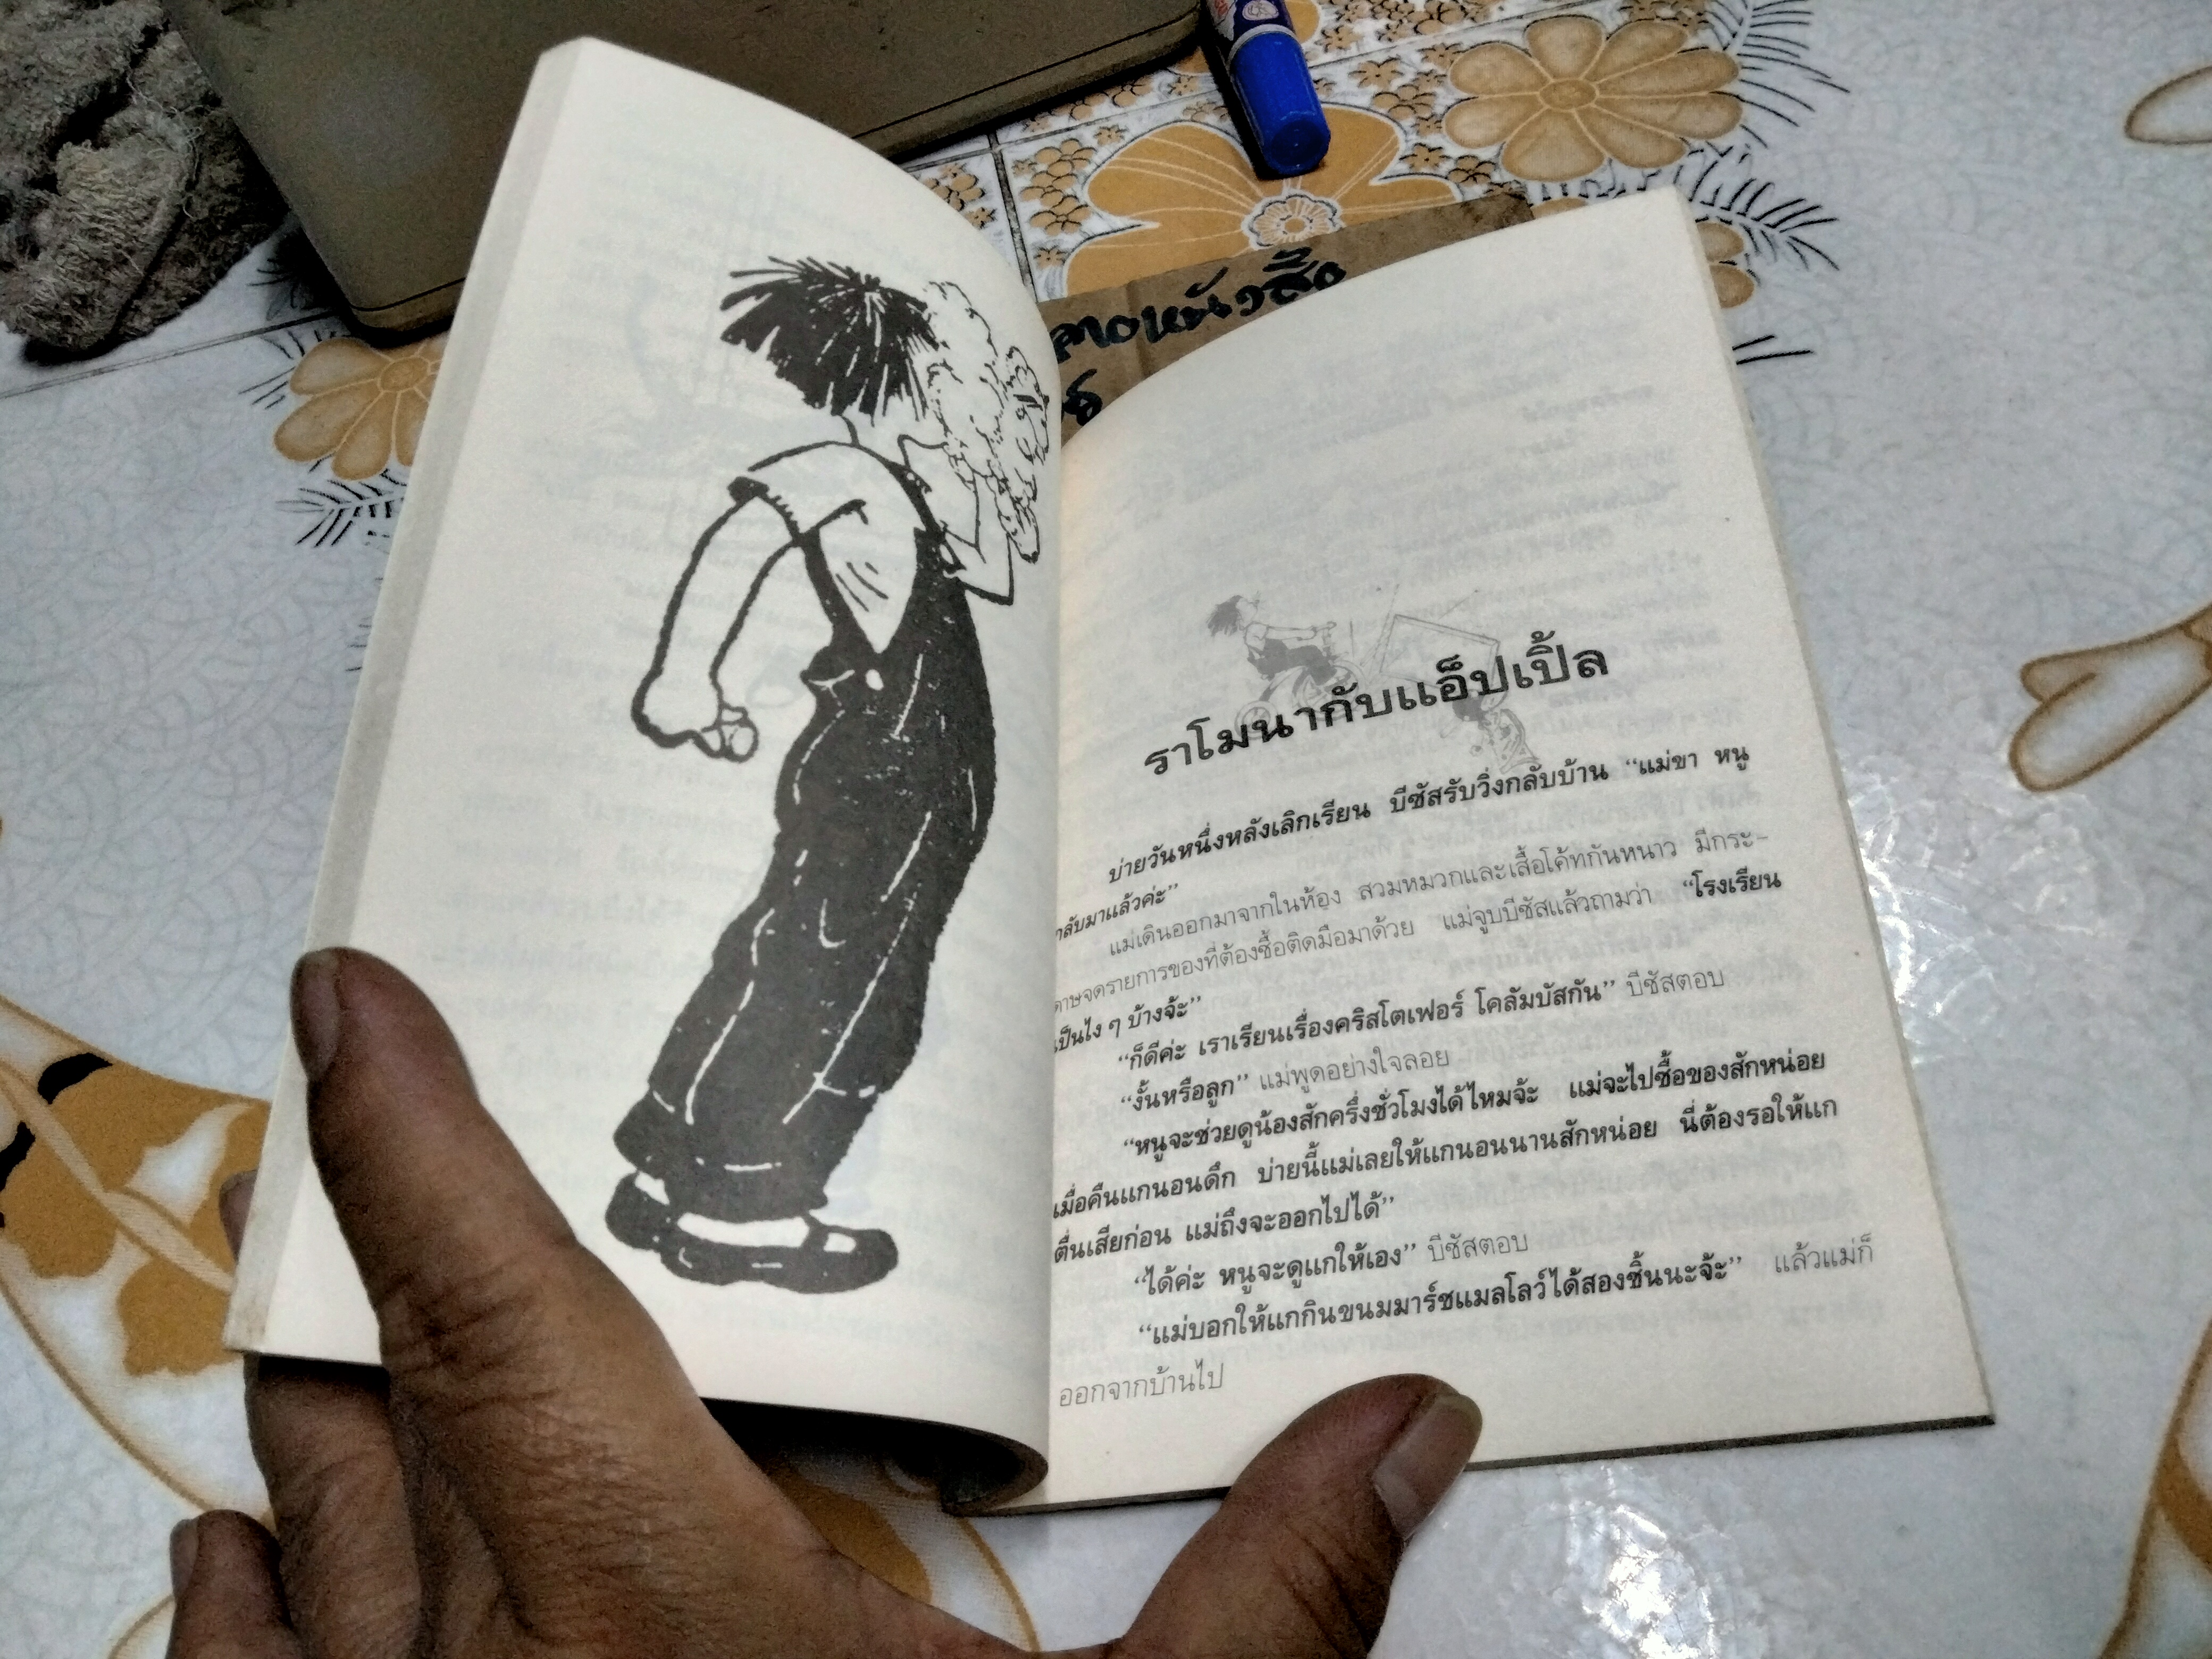 ลาดหนังสือ
ราโมนากับแอ็ปเปิ้ล
บ่ายวันหนึ่งหลังเลิกเรียน บีซัสรับวิ่งกลับบ้าน “แม่ขา หนู
กลับมาแล้วค่ะ”
แม่เดินออกมาจากในห้อง สวมหมวกและเสื้อโค้ทกันหนาว มีกระ-
ดาษจดรายการของที่ต้องซื้อติดมือมาด้วย แม่จูบบีซัสแล้วถามว่า “โรงเรียน
เป็นไง ๆ บ้างจ้ะ”
“ก็ดีค่ะ เราเรียนเรื่องคริสโตเฟอร์ โคลัมบัสกัน” บีซัสตอบ
“งั้นหรือลูก” แม่พูดอย่างใจลอย
“หนูจะช่วยดูน้องสักครึ่งชั่วโมงได้ไหมจ้ะ แม่จะไปซื้อของสักหน่อย
เมื่อคืนแกนอนดึก บ่ายนี้แม่เลยให้แกนอนนานสักหน่อย นี่ต้องรอให้แก
ตื่นเสียก่อน แม่ถึงจะออกไปได้”
“ได้ค่ะ หนูจะดูแกให้เอง” บีซัสตอบ
“แม่บอกให้แกกินขนมมาร์ชแมลโลว์ได้สองชิ้นนะจ้ะ” แล้วแม่ก็
ออกจากบ้านไป